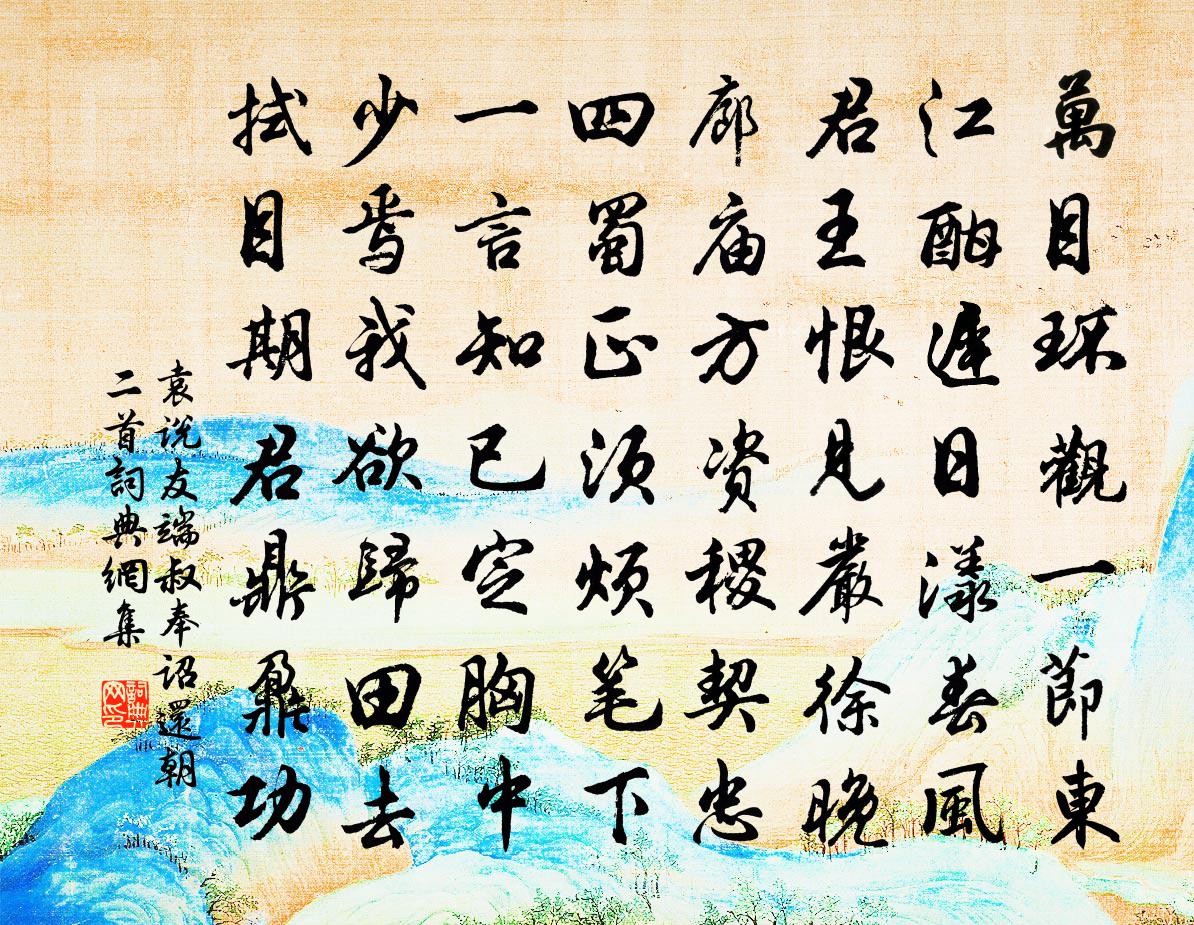 萬目环觀一節東
江酣遲日漾春風
君王恨見嚴徐晚
廊庙方资稷契忠
四蜀正须烦笔下
一言知已定胸中
少焉我欲歸田去
拭目期君鼎鼐功
袁说友端叔奉诏還朝
二首詞典網集
詞典网印